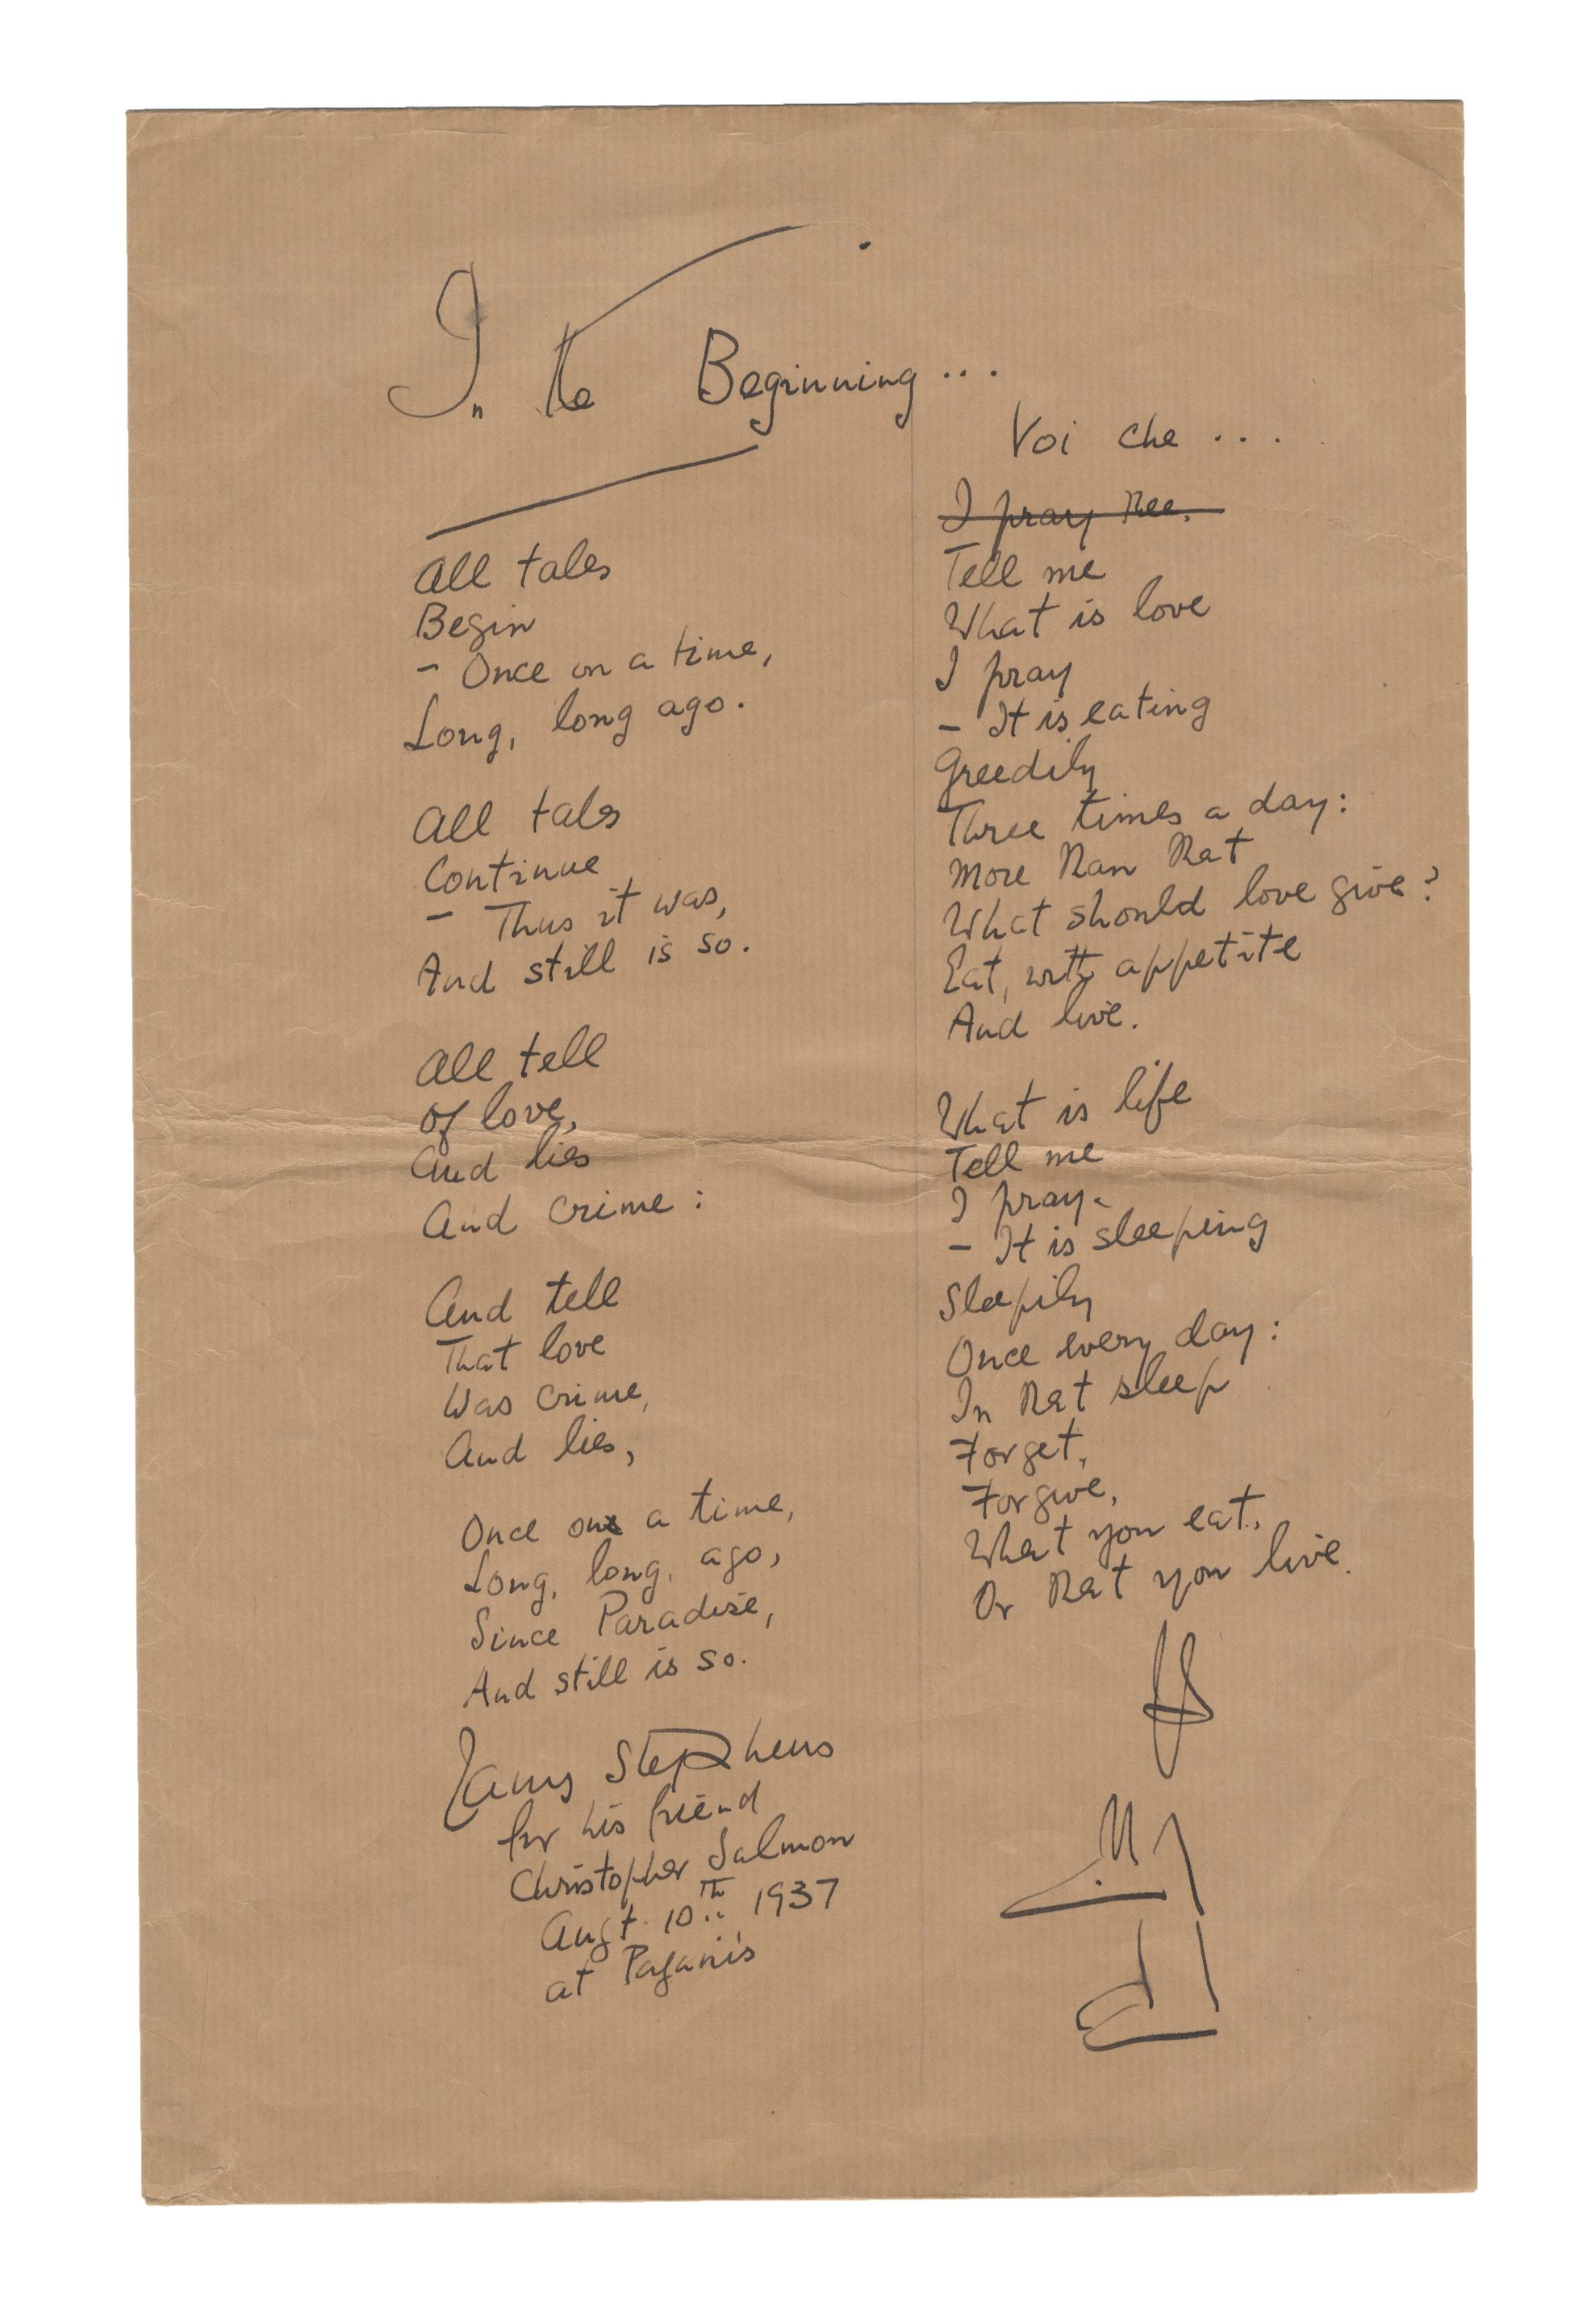 In the Beginning ...
All tales
Begin
– Once on a time,
Long, long ago.
All tales
Continue
– Thus it was,
And still is so.
All tell
of love,
And lies
And crime :
And tell
That love
Was crime,
And lies,
Once on a time,
Long, long, ago,
Since Paradise,
And still is so.
James Stephens
for his friend
Christopher Salmon
Augt. 10th 1937
at Pagani's
Voi che ...
I pray thee,
Tell me
What is love
I pray
– It is eating
Greedily
Three times a day :
More than that
What should love give ?
Eat, with appetite
And live.
What is life
Tell me
I pray.
– It is sleeping
Sleepily
Once every day :
In that sleep
Forget,
Forgive,
What you eat,
Or that you live.